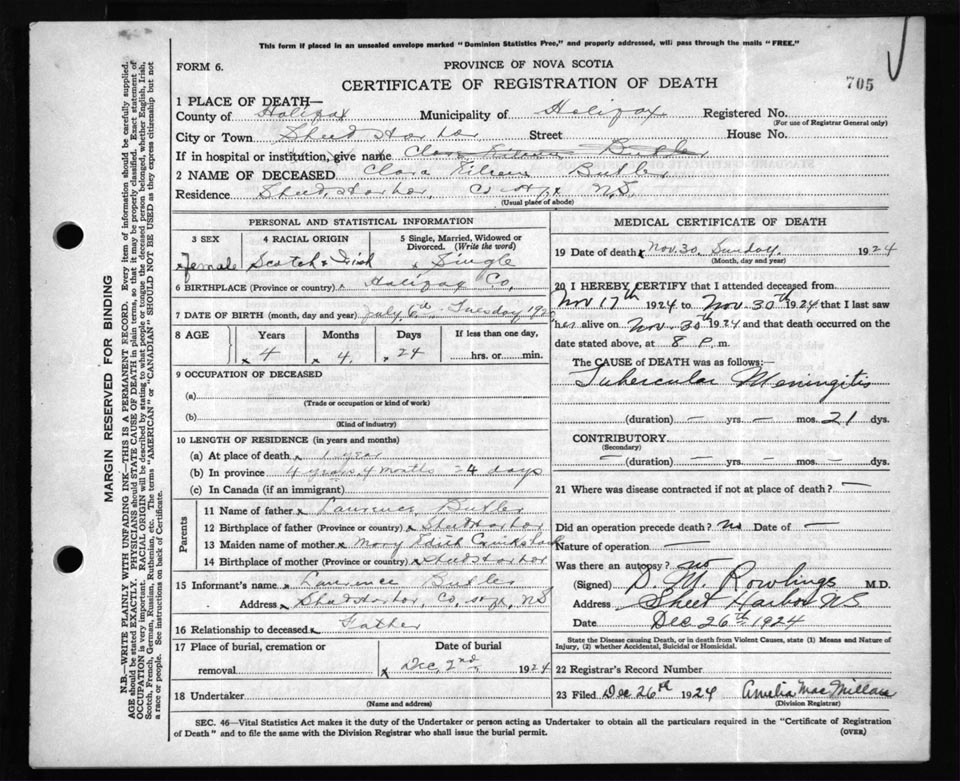 This form if placed in an unsealed envelope marked "Dominion Statistics Free," and properly addressed, will pass through the mails "FREE."
FORM 6.
PROVINCE OF NOVA SCOTIA
CERTIFICATE OF REGISTRATION OF DEATH
705
1 PLACE OF DEATH—
County of Halifax Municipality of Halifax Registered No.
(For use of Registrar General only)
City or Town Sheet Harbor Street House No.
If in hospital or institution, give name Clara Eileen Butler
2 NAME OF DECEASED Clara Eileen Butler
Residence Sheet Harbor, Co Hfx N.S.
(Usual place of abode)
PERSONAL AND STATISTICAL INFORMATION
3 SEX 4 RACIAL ORIGIN 5 Single, Married, Widowed or Divorced. (Write the word)
x Female Scotch & Irish x Single
6 BIRTHPLACE (Province or country) x Halifax Co,
7 DATE OF BIRTH (month, day and year) July 6th Tuesday 1920
8 AGE Years Months Days If less than one day,
x 4 x 4 x 24 hrs. or min.
9 OCCUPATION OF DECEASED
(a)
(Trade or occupation or kind of work)
(b)
(Kind of industry)
10 LENGTH OF RESIDENCE (in years and months)
(a) At place of death x 1 year
(b) In province 4 years 4 months 24 days
(c) In Canada (if an immigrant)
Parents
11 Name of father x Laurence Butler
12 Birthplace of father (Province or country) x Sheet Harbor
13 Maiden name of mother x Mary Edith
14 Birthplace of mother (Province or country) x Sheet Harbor
15 Informant's name x Laurence Butler
Address x Sheet Harbor, Co, Hfx, NS
16 Relationship to deceased x Father
17 Place of burial, cremation or removal Date of burial
x Dec, 2nd 1924
18 Undertaker
(Name and address)
MEDICAL CERTIFICATE OF DEATH
19 Date of death x Nov. 30, Sunday, 1924
(Month, day and year)
20 I HEREBY CERTIFY that I attended deceased from
Nov 17th 1924 to Nov 30th 1924 that I last saw
her alive on Nov 30th 1924 and that death occurred on the
date stated above, at 8 P. m.
The CAUSE of DEATH was as follows:—
Tubercular Meningitis
(duration) — yrs. — mos. 21 dys.
CONTRIBUTORY
(Secondary)
— (duration) — yrs. — mos. — dys.
21 Where was disease contracted if not at place of death? —
Did an operation precede death? no Date of —
Nature of operation —
Was there an autopsy? no
(Signed) D. M. Rowlings M.D.
Address Sheet Harbor NS
Date Dec. 26th 1924
State the Disease causing Death, or in death from Violent Causes, state (1) Means and Nature of
Injury, (2) whether Accidental, Suicidal or Homicidal.
22 Registrar's Record Number
23 Filed Dec 26th 1924 Amelia MacMillan
(Division Registrar)
SEC. 46—Vital Statistics Act makes it the duty of the Undertaker or person acting as Undertaker to obtain all the particulars required in the "Certificate of Registration
of Death" and to file the same with the Division Registrar who shall issue the burial permit. (OVER)
MARGIN RESERVED FOR BINDING
N.B.—WRITE PLAINLY WITH UNFADING INK—THIS IS A PERMANENT RECORD. Every item of information should be carefully supplied.
AGE should be stated EXACTLY. PHYSICIANS should STATE CAUSE OF DEATH in plain terms, so that it may be properly classified. Exact statement of
OCCUPATION is very important. RACIAL ORIGIN will be described by stating to what people or tongue the deceased person belonged, whether English, Irish,
Scotch, French, German, Russian, Ruthenian, etc. The terms "AMERICAN" or "CANADIAN" SHOULD NOT BE USED as they express citizenship but not
a race or people. See instructions on back of Certificate.